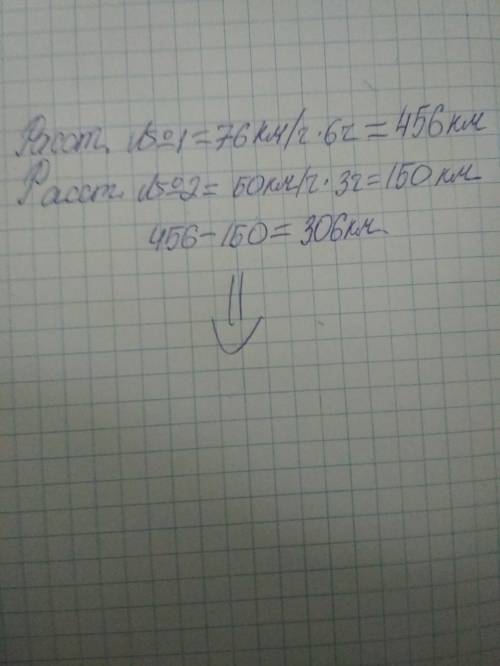 Расст. №1 = 76км/ч · 6ч = 456км
Расст. №2 = 50км/ч · 3ч = 150км
456 - 150 = 306км.